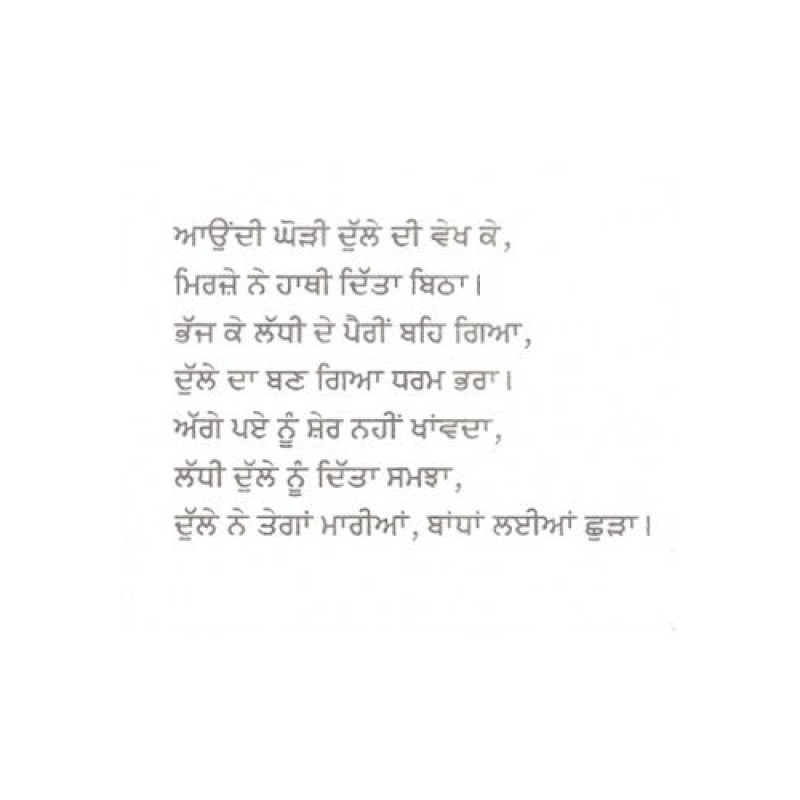 ਆਉਂਦੀ ਘੋੜੀ ਦੁੱਲੇ ਦੀ ਵੇਖ ਕੇ,
ਮਿਰਜ਼ੇ ਨੇ ਹਾਥੀ ਦਿੱਤਾ ਬਿਠਾ।
ਭੱਜ ਕੇ ਲੱਧੀ ਦੇ ਪੈਰੀਂ ਬਹਿ ਗਿਆ,
ਦੁੱਲੇ ਦਾ ਬਣ ਗਿਆ ਧਰਮ ਭਰਾ।
ਅੱਗੇ ਪਏ ਨੂੰ ਸ਼ੇਰ ਨਹੀਂ ਖਾਂਵਦਾ,
ਲੱਧੀ ਦੁੱਲੇ ਨੂੰ ਦਿੱਤਾ ਸਮਝਾ,
ਦੁੱਲੇ ਨੇ ਤੇਗਾਂ ਮਾਰੀਆਂ, ਬਾਂਧਾਂ ਲਈਆਂ ਛੁੜਾ।